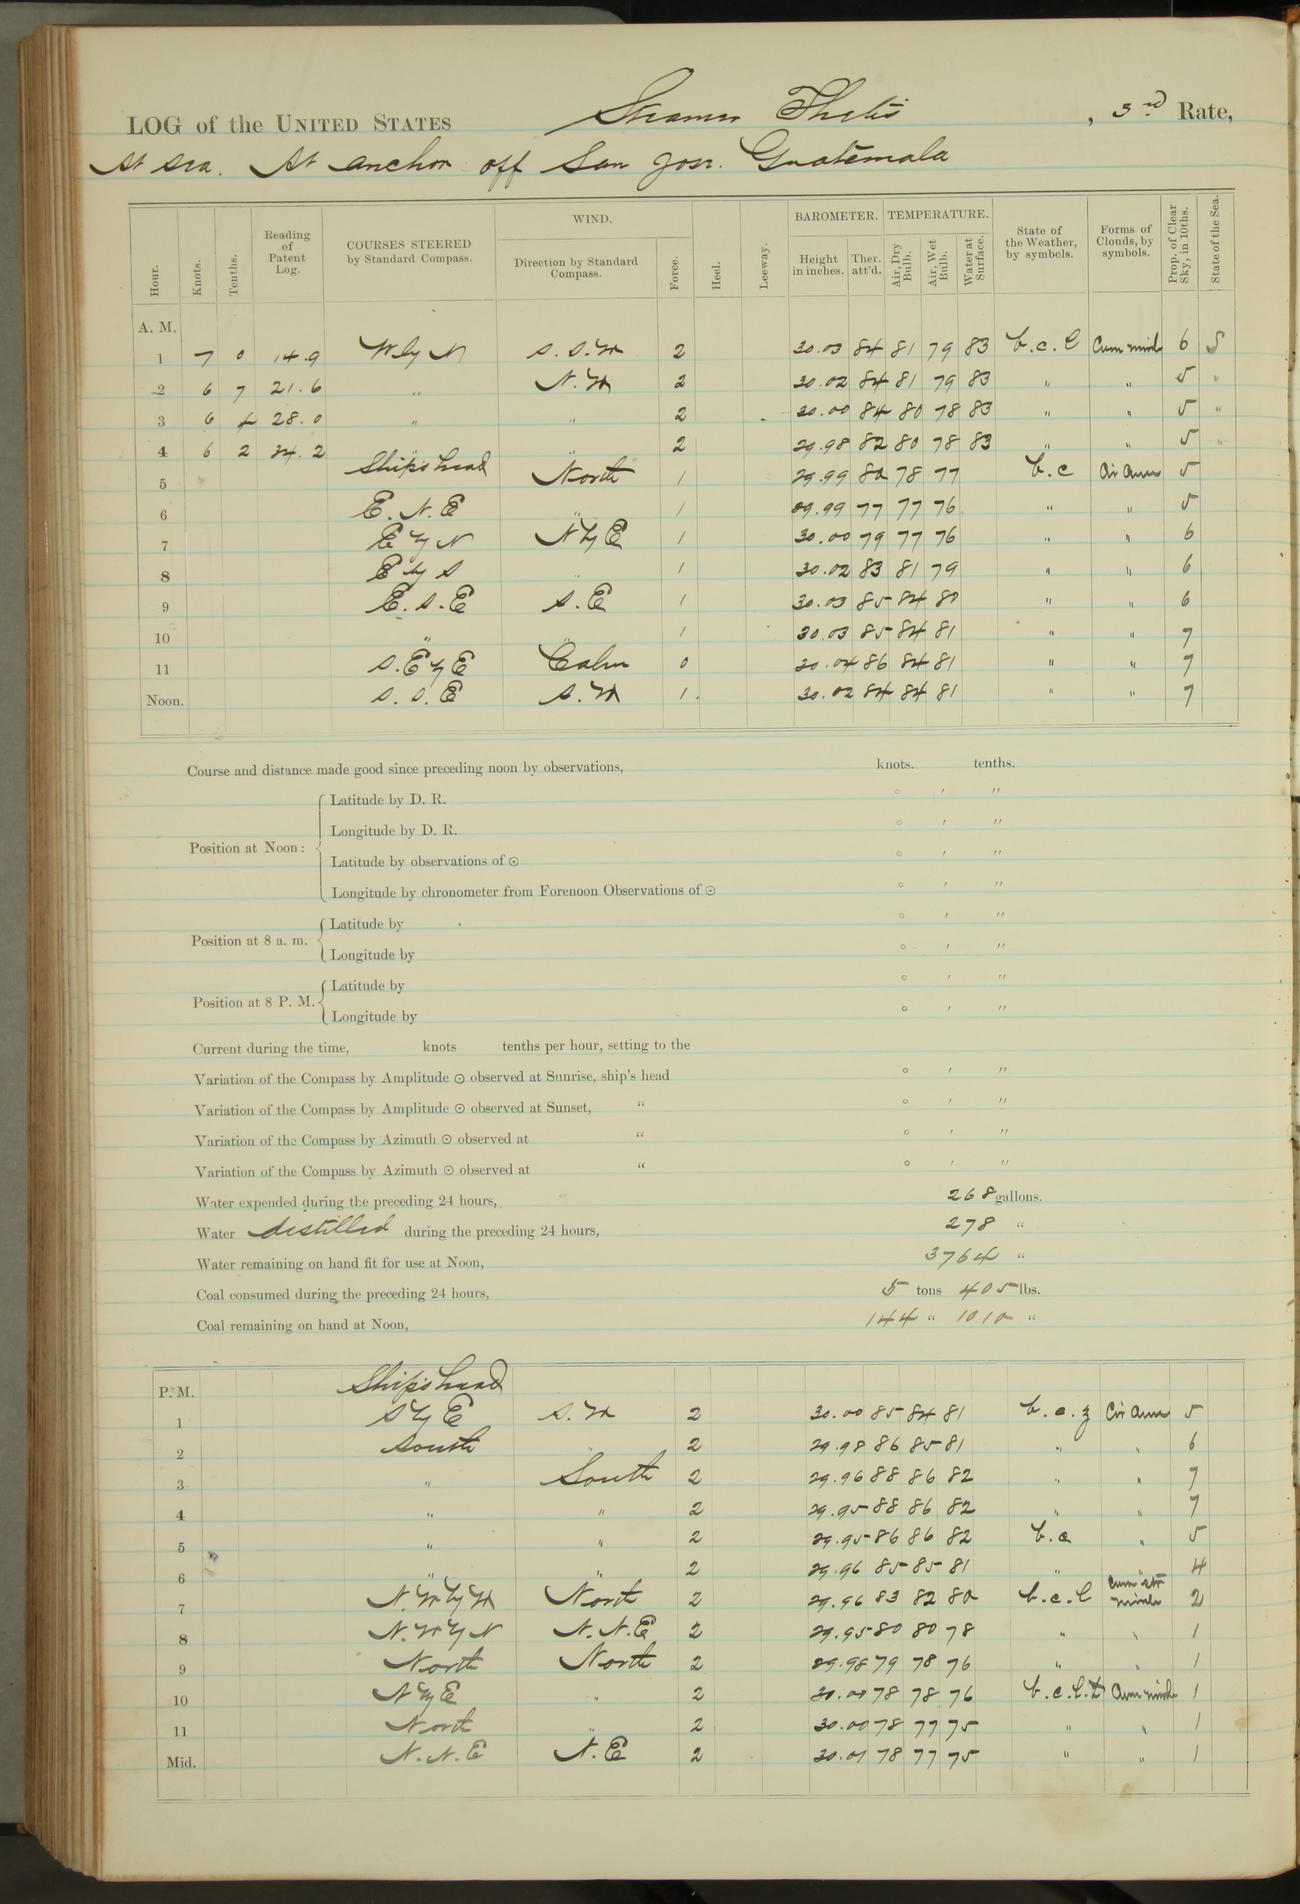 LOG of the UNITED STATES Steamer Thetis, 3rd Rate,
At sea. At anchor off San Jose. Guatemala
Hour. Knots. Tenths. Reading of Patent Log. COURSES STEERED by Standard Compass. WIND. Direction by Standard Compass. Force. Heel. Leeway. BAROMETER. Height in inches. Ther. att'd. TEMPERATURE. Air, Dry Bulb. Air, Wet Bulb. Water at Surface. State of the Weather, by symbols. Forms of Clouds, by symbols. Prop. of Clear Sky, in 10ths. State of the Sea.
A. M.
1 7 0 14.9 W by N S.S.W 2 30.03 84 81 79 83 b.c.l Cum nimb 6 S
2 6 7 21.6 " N.W 2 30.02 84 81 79 83 " " 5 "
3 6 4 28.0 " " 2 30.00 84 80 78 83 " " 5 "
4 6 2 34.2 " " 2 29.98 82 80 78 83 " " 5 "
Ship's head
5 North 1 29.99 80 78 77 b.c Cir Cum 5
6 E.N.E " 1 29.99 77 77 76 " " 5
7 E by N N by E 1 30.00 79 77 76 " " 6
8 E by S " 1 30.02 83 81 79 " " 6
9 E.S.E S.E 1 30.03 85 84 80 " " 6
10 " " 1 30.03 85 84 81 " " 7
11 S.E by E Calm 0 30.04 86 84 81 " " 7
Noon. S.S.E S.W 1. 30.02 84 84 81 " " 7
Course and distance made good since preceding noon by observations, knots. tenths.
Position at Noon:
Latitude by D. R. ° ′ ″
Longitude by D. R. ° ′ ″
Latitude by observations of ☉ ° ′ ″
Longitude by chronometer from Forenoon Observations of ☉ ° ′ ″
Position at 8 a. m.
Latitude by ° ′ ″
Longitude by ° ′ ″
Position at 8 P. M.
Latitude by ° ′ ″
Longitude by ° ′ ″
Current during the time, knots tenths per hour, setting to the
Variation of the Compass by Amplitude ☉ observed at Sunrise, ship's head ° ′ ″
Variation of the Compass by Amplitude ☉ observed at Sunset, " ° ′ ″
Variation of the Compass by Azimuth ☉ observed at " ° ′ ″
Variation of the Compass by Azimuth ☉ observed at " ° ′ ″
Water expended during the preceding 24 hours, 268 gallons.
Water distilled during the preceding 24 hours, 278 "
Water remaining on hand fit for use at Noon, 3764 "
Coal consumed during the preceding 24 hours, 5 tons 405 lbs.
Coal remaining on hand at Noon, 144 " 1010 "
P. M. Ship's head
1 S by E S.W 2 30.00 85 84 81 b.c.z Cir Cum 5
2 South " 2 29.98 86 85 81 " " 6
3 " South 2 29.96 88 86 82 " " 7
4 " " 2 29.95 88 86 82 " " 7
5 " " 2 29.95 86 86 82 b.c " 5
6 " " 2 29.96 85 85 81 " " 4
7 N.W by W North 2 29.96 83 82 80 b.c.l Cum str nimb 2
8 N.W by N N.N.E 2 29.95 80 80 78 " " 1
9 North North 2 29.98 79 78 76 " " 1
10 N by E " 2 30.00 78 78 76 b.c.l.t Cum nimb 1
11 North " 2 30.00 78 77 75 " " 1
Mid. N.N.E N.E 2 30.01 78 77 75 " " 1